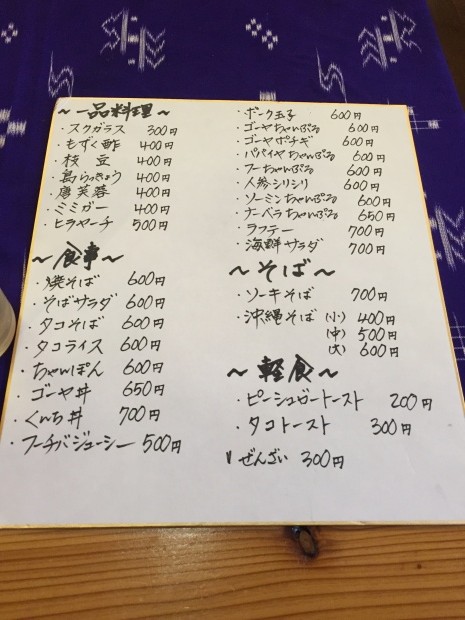 ～一品料理～
・スクガラス 300円
・もずく酢 400円
・枝豆 400円
・島らっきょう 400円
・唐芙蓉 400円
・ミミガー 400円
・ヒラヤーチ 500円
～食事～
・焼そば 600円
・そばサラダ 600円
・タコそば 600円
・タコライス 600円
・ちゃんぽん 600円
・ゴーヤ丼 650円
・くんち丼 700円
・フーチバジューシー 500円
・ポーク玉子 600円
・ゴーヤちゃんぷる 600円
・ゴーヤポチギ 600円
・パパイヤちゃんぷる 600円
・フーちゃんぷる 600円
・人参シリシリ 600円
・ソーミンちゃんぷる 600円
・ナーベラちゃんぷる 650円
・ラフテー 700円
・海鮮サラダ 700円
～そば～
・ソーキそば 700円
・沖縄そば (小) 400円
(中) 500円
(大) 600円
～軽食～
・ピーシュガートースト 200円
・タコトースト 300円
ぜんざい 300円